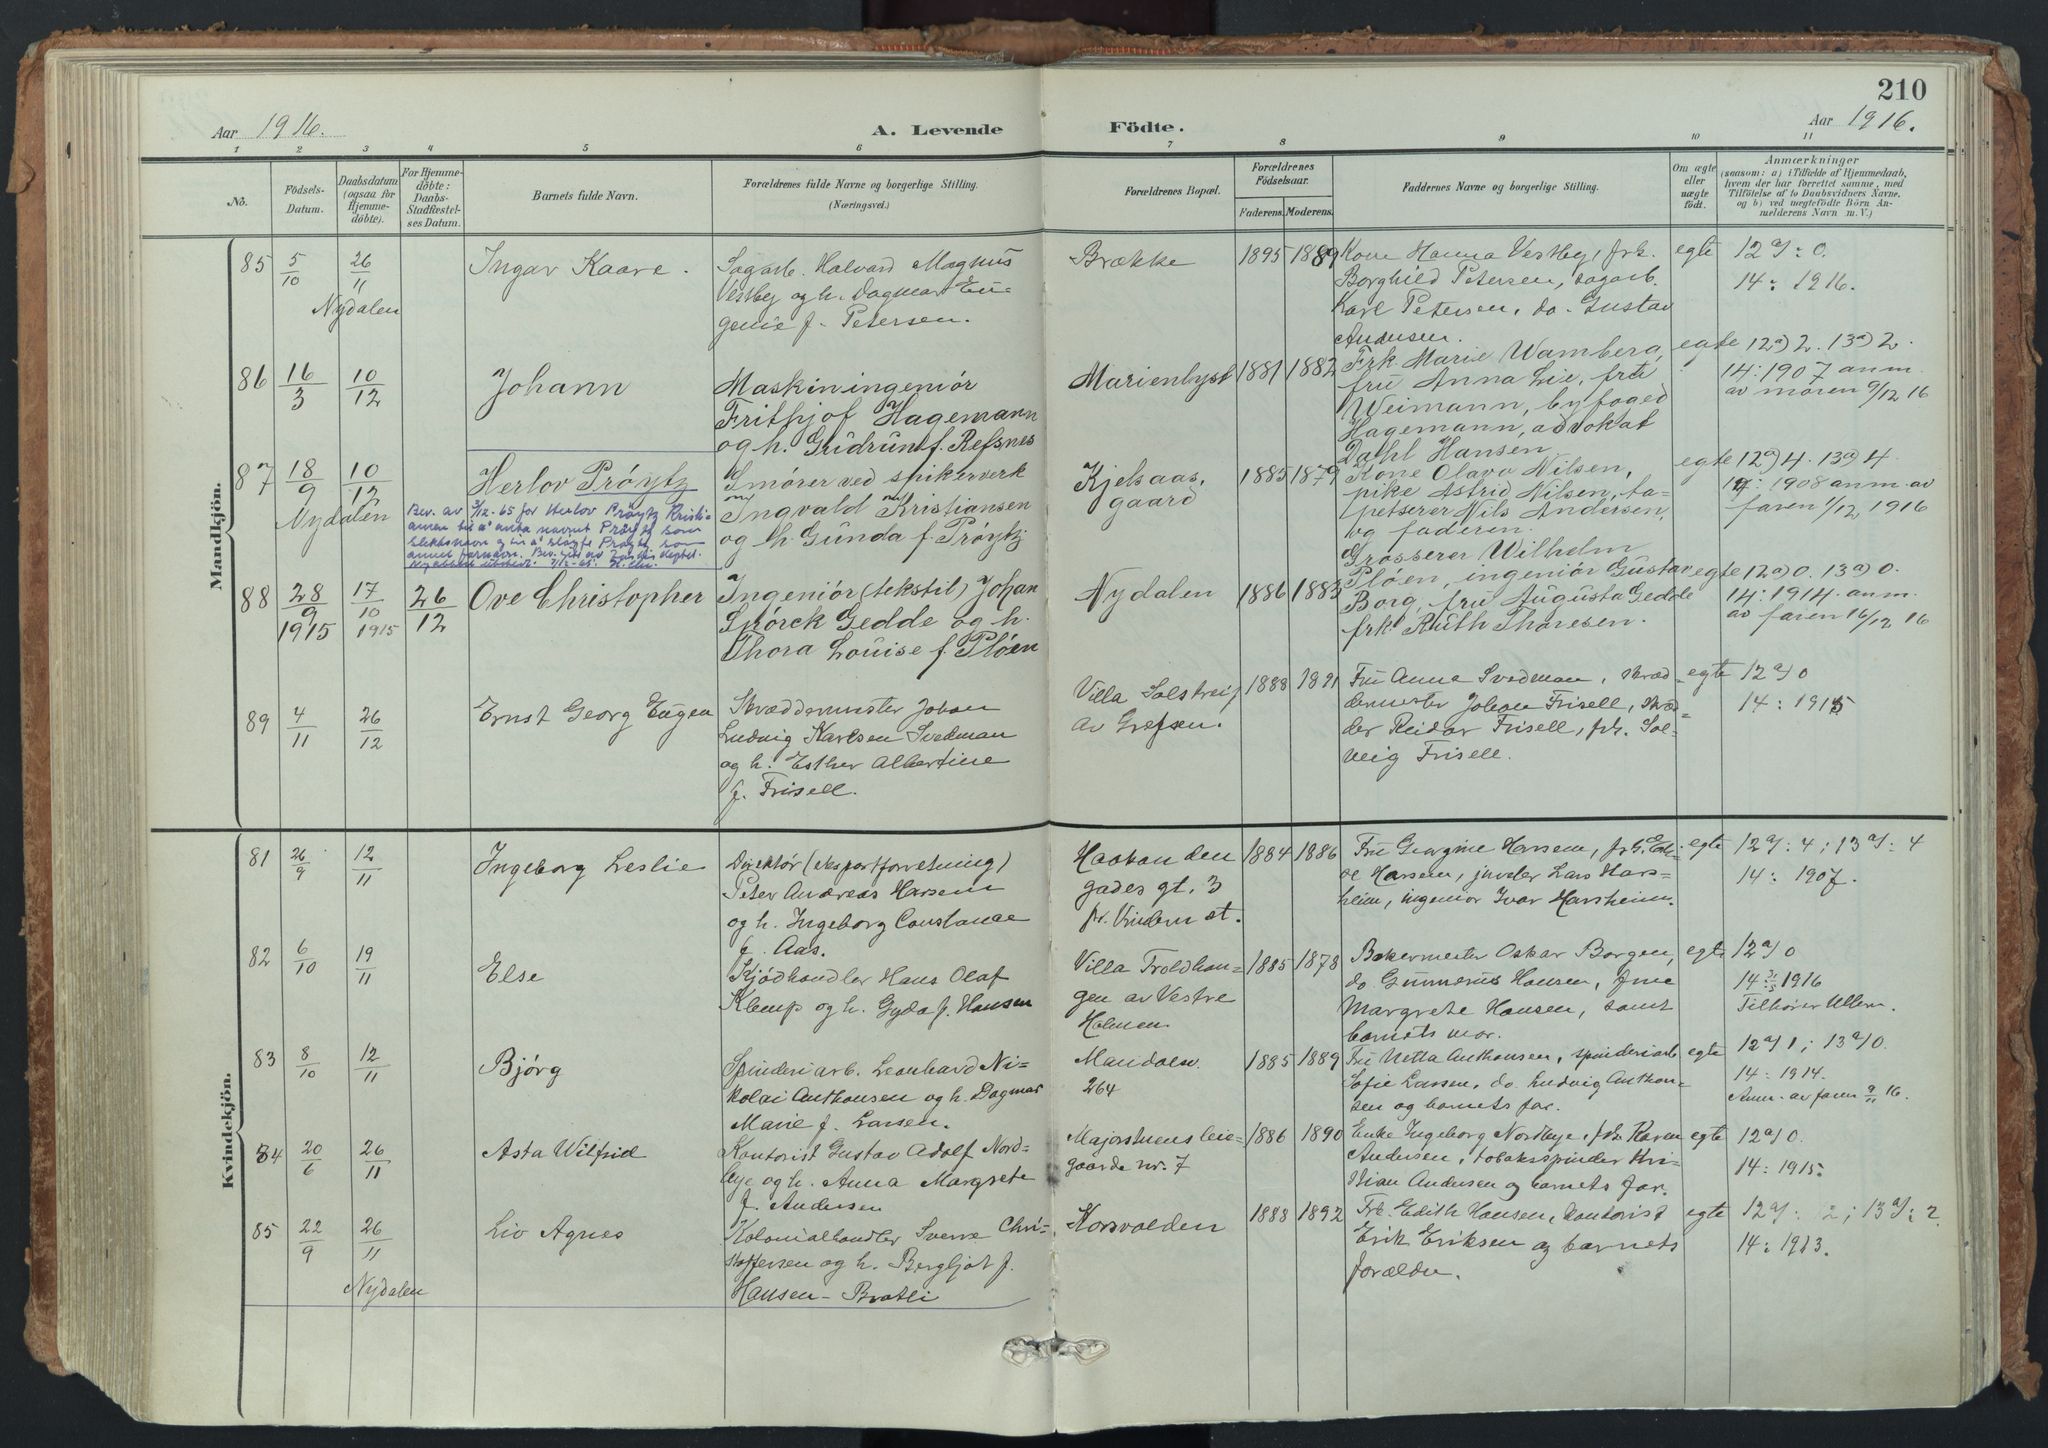 210
Aar 1916.
A. Levende Födte.
Aar 1916.
1 2 3 4 5 6 7 8 9 10 11
No.
Födsels-Datum.
Daabsdatum (ogsaa for Hjemmedöbte).
For Hjemmedöbte: Daabs-Stadfæstelses Datum.
Barnets fulde Navn.
Forældrenes fulde Navne og borgerlige Stilling.
(Næringsvei.)
Forældrenes Bopæl.
Forældrenes Födselsaar.
Faderens. Moderens.
Faddernes Navne og borgerlige Stilling.
Om ægte eller uægte födt.
Anmærkninger
(saasom: a) i Tilfælde af Hjemmedaab, hvem der har forrettet samme, med Tilföielse af to Daabsvidners Navne. og b) ved uægtefödte Börn Anmelderens Navn m. V.)
Mandkjön.
85 5/10 26/11 Nydalen
Ingar Kaare.
Sagarb. Halvard Magnus
Vestby og h. Dagmar Eu-
genie f. Petersen.
Brække
1895 1889
Kone Hanna Vestby, frk.
Borghild Petersen, sagarb.
Karl Petersen, do. Gustav
Andersen.
egte
12 a): 0.
14: 1916.
86 16/3 10/12
Johann
Maskiningeniør
Frithjof Hagemann
og h. Gudrun f. Refsnes
Marienlyst
1881 1882
Frk. Marie Wamberg,
fru Anna Lie, fru
Weimann, byfoged
Hagemann, advokat
Dahl Hansen
egte
12 a) 2. 13 a) 2.
14: 1907 anm.
av moren 9/12 16
87 18/9 10/12 Nydalen
Herlov Prøytz
Bev. av 7/12-65 for Herlov Prøytz Kristi-
ansen til å anta navnet Prøytz som
slektsnavn og til å sløyfe Prøytz som
annet fornavn.
Smører ved spikerverk
Ingvald Kristiansen
og h. Gunda f. Prøytz
Kjelsaas,
gaard
1885 1879
Kone Olava Nilsen,
pike Astrid Nilsen, ta-
petserer Nils Andersen,
og faderen.
egte
12 a) 4. 13 a) 4
14: 1908 anm. av
faren 1/12 1916
88 28/9 1915 17/10 1915 26/12
Ove Christopher
Ingeniør (tekstil) Johan
Størck Gedde og h.
Thora Louise f. Pløen
Nydalen
1886 1883
Grosserer Wilhelm
Pløen, ingeniør Gustav
Borg, fru Augusta Gedde
frk. Ruth Thoresen.
egte
12 a) 0. 13 a) 0.
14: 1914. anm.
av faren 16/12 16
89 4/11 26/12
Ernst Georg Eugen
Skræddermester Johan
Ludvig Karlsen Svedman
og h. Esther Albertine
f. Frisell.
Villa Solstreif
av Grefsen.
1888 1891
Fru Anna Svedman, skræd-
dermester Johan Frisell, skræd-
der Reidar Frisell, frk. Sol-
veig Frisell.
egte
12 a) 0
14: 1915
Kvindekjön.
81 26/9 12/11
Ingeborg Leslie
Direktør (eksportforretning)
Peter Andreas Harsem
og h. Ingeborg Constance
f. Aas.
Haakon den
godes gt. 3
pr. Vinderen st.
1884 1886
Fru Georgine Harsem,
Harsem, juveler Lars Hars-
heim, ingeniør Ivar Harsheim.
egte
12 a): 4; 13 a): 4
14: 1907.
82 6/10 19/11
Else
Kjødhandler Hans Olaf
Klemp og h. Gyda f. Hansen
Villa Troldhau-
gen av Vestre
Holmen.
1885 1878
Bakermester Oskar Borgen,
do. Gunnerius Hansen, frue
Margrete Hansen, samt
barnets mor.
egte
12 a) 0
14: 1916
Tilhører Ullern.
83 8/10 12/11
Bjørg
Spinderiarb. Leonhard Ni-
kolai Anthonsen og h. Dagmar
Marie f. Larsen.
Maridalsv.
264
1885 1889
Fru Netta Anthonsen, spinderiarb
Sofie Larsen, do. Ludvig Anthon-
sen og barnets far.
egte
12 a) 1; 13 a) 0.
14: 1914.
Anm. av faren 9/11 16.
84 20/6 26/11
Asta Wilfrid
Kontorist Gustav Adolf Nord-
bye og h. Anna Margrete
f. Andersen
Majorstuens leie-
gaarde nr. 7
1886 1890
Enke Ingeborg Nordbye, frk. Karen
Andersen, tobaksspinder Kri-
stian Andersen og barnets far.
egte
12 a) 0.
14: 1915.
85 22/9 26/11 Nydalen
Liv Agnes
Kolonialhandler Sverre Chri-
stoffersen og h. Bergljot f.
Hansen-Bratli
Korsvolden
1888 1892
Frk. Edith Hansen, kontorist
Erik Eriksen og barnets
forældre.
egte
12 a): 2; 13 a): 2
14: 1913.